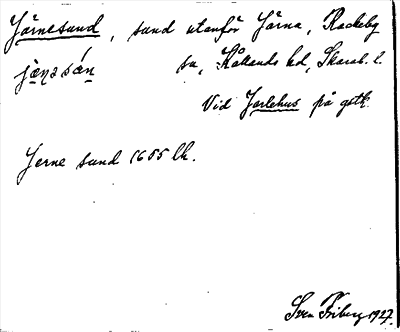 Järnesund, sund utanför Järna, Rackeby
sn, Kållands hd, Skarab. l.
Vid Jarlehus på gstk.
Jerne sund 1655 lk.
Sven Friberg 1927.